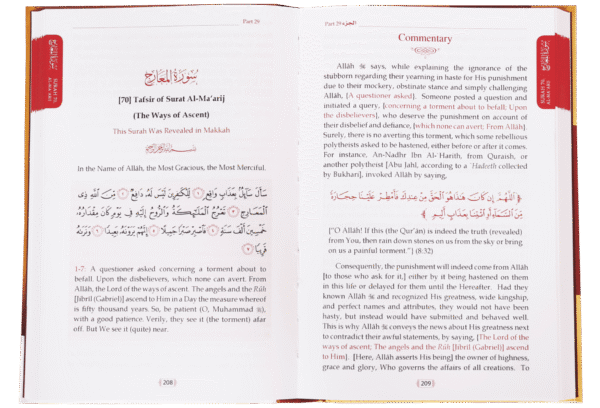 Part 29
سورة المعارج
[70] Tafsir of Surat Al-Ma'arij
(The Ways of Ascent)
This Surah Was Revealed in Makkah
In the Name of Allâh, the Most Gracious, the Most Merciful.
سَأَلَ سَآئِلٌۢ بِعَذَابٍ وَاقِعٍ ١ لِّلْكَٰفِرِينَ لَيْسَ لَهُۥ دَافِعٌ ٢ مِّنَ ٱللَّهِ ذِى
ٱلْمَعَارِجِ ٣ تَعْرُجُ ٱلْمَلَٰٓئِكَةُ وَٱلرُّوحُ إِلَيْهِ فِى يَوْمٍ كَانَ مِقْدَارُهُۥ
خَمْسِينَ أَلْفَ سَنَةٍ ٤ فَٱصْبِرْ صَبْرًا جَمِيلًا ٥ إِنَّهُمْ يَرَوْنَهُۥ بَعِيدًا ٦ وَنَرَىٰهُ
قَرِيبًا ٧
1-7: A questioner asked concerning a torment about to
befall. Upon the disbelievers, which none can avert. From
Allâh, the Lord of the ways of ascent. The angels and the Rûh
[Jibril (Gabriel)] ascend to Him in a Day the measure whereof
is fifty thousand years. So, be patient (O, Muhammad ﷺ),
with a good patience. Verily, they see it (the torment) afar
off. But We see it (quite) near.
208
Part 29 الجزء
Commentary
Allâh ﷻ says, while explaining the ignorance of the
stubborn regarding their yearning in haste for His punishment
due to their mockery, obstinate stance and simply challenging
Allâh, [A questioner asked]. Someone posted a question and
initiated a query, [concerning a torment about to befall; Upon
the disbelievers], who deserve the punishment on account of
their disbelief and defiance, [which none can avert; From Allâh].
Surely, there is no averting this torment, which some rebellious
polytheists asked to be hastened, either before or after it comes.
For instance, An-Nadhr Ibn Al-Harith, from Quraish, or
another polytheist [Abu Jahl, according to a 'Hadeeth collected
by Bukhari], invoked Allâh by saying,
﴿ ٱللَّهُمَّ إِن كَانَ هَٰذَا هُوَ ٱلْحَقَّ مِنْ عِندِكَ فَأَمْطِرْ عَلَيْنَا حِجَارَةً
مِّنَ ٱلسَّمَآءِ أَوِ ٱئْتِنَا بِعَذَابٍ أَلِيمٍ ﴾
("O Allâh! If this (the Qur'ân) is indeed the truth (revealed)
from You, then rain down stones on us from the sky or bring
on us a painful torment.") (8:32)
Consequently, the punishment will indeed come from Allâh
[to those who ask for it,] either by it being hastened on them
in this life or delayed for them until the Hereafter. Had they
known Allâh ﷻ and recognized His greatness, wide kingship,
and perfect names and attributes, they would not have been
hasty, but instead would have submitted and behaved well.
This is why Allâh ﷻ conveys the news about His greatness next
to contradict their awful statements, by saying, [The Lord of the
ways of ascent; The angels and the Rûh [Jibril (Gabriel)] ascend
to Him]. [Here, Allâh asserts His being] the owner of highness,
grace and glory, Who governs the affairs of all creations. To
209